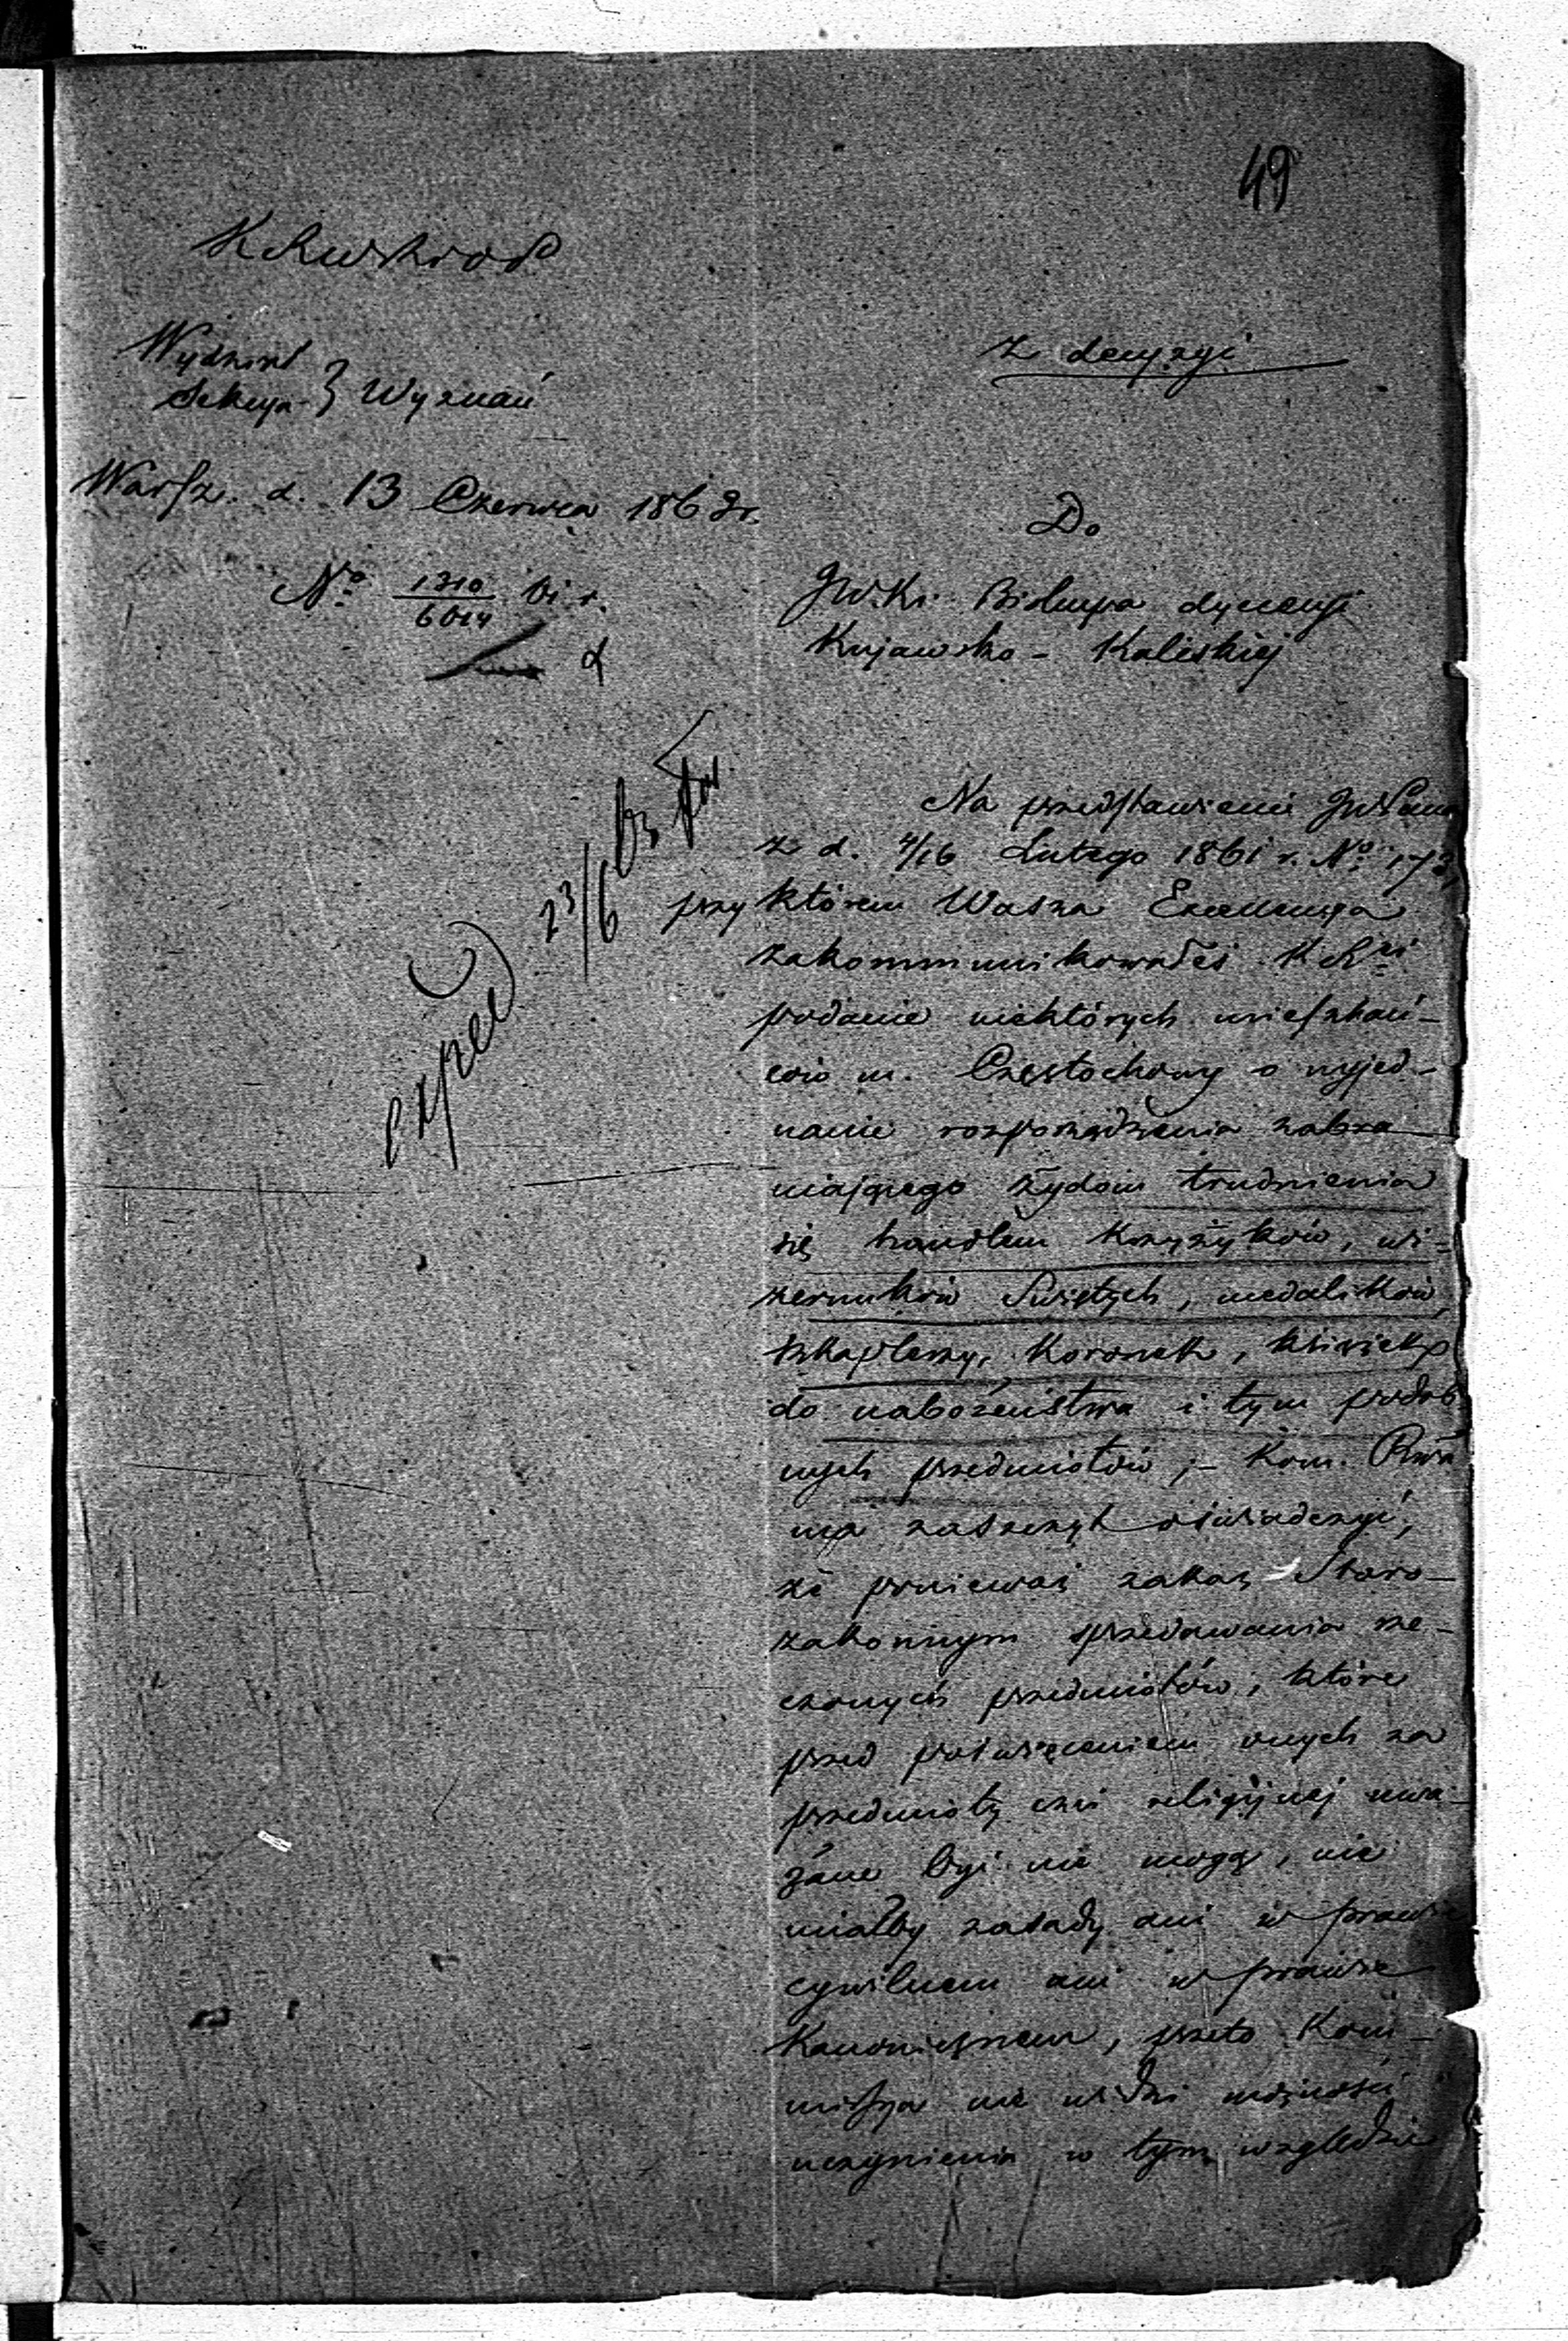 49
K R W R i O P
Wydział
Sekcya } Wyznań
Warsz. d. 13 Czerwca 1862 r.
No
Z decyzyi
Do
JW. Ks. Biskupa dyecezyi
Kujawsko - Kaliskiej
exped 23/6
Na przedstawienie JW Pana
z d. 4/16 Lutego 1861 r. No 173,
przy którem Wasza Excellencya
zakommunikowałeś K R yi
podanie niektórych mieszkań-
ców m. Częstochowy o wyjed-
nanie rozporządzenia zabra-
niającego żydom trudnienia
się handlem krzyżyków, wi-
zerunków Świętych, medalików,
szkaplerzy, koronek, książek
do nabożeństwa i tym podob
nych przedmiotów; - Kom. Rzą
ma zaszczyt oświadczyć,
że ponieważ zakaz Staro-
zakonnym sprzedawania rze-
czonych przedmiotów, które
przed poświęceniem onych za
przedmioty czci religijnej uwa-
żane być nie mogą, nie
miałby zasady ani w prawie
cywilnem ani w prawie
Kanonicznem, przeto Kom-
missya nie widzi możności
uczynienia w tym względzie